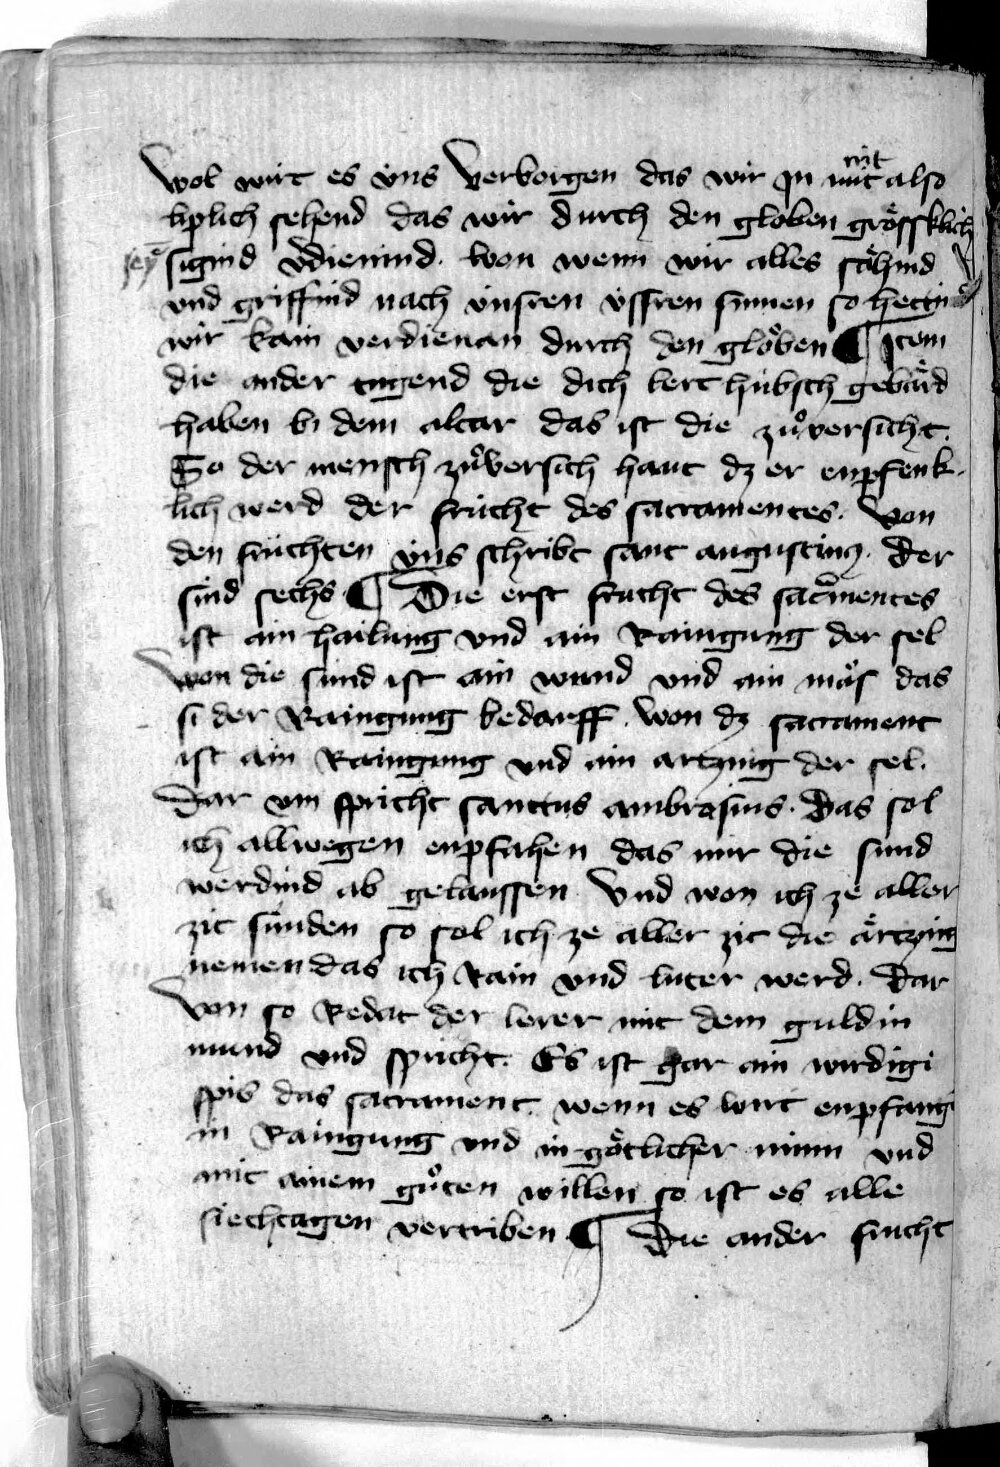 wol wirt es v́ns verborgen das wir Jn nút nit also
liplich sehend das wir durch den globen grösklich
sigind v̄dienind. won wenn wir alles sähind
vnd griffind nach v́nsren v́ssren sinnen so hettin
wir kain verdienan durch den glöben ¶ Jtem
die ander tugend die dich lert húbsch gebärd
haben bi dem altar das ist die zůversicht.
So der mensch zůversich haut dz er enpfenk-
lich werd der frúcht des sacramentes. von
den frúchten v́ns schribt sant augustinus. Der
sind sechs ¶ Die erst frucht des sacramentes
ist ain hailung vnd ain Rainigung der sel
won die sund ist ain wund vnd ain maͧs das
si der Rainigung bedarff. won dz sacrament
ist ain Rainigung vnd ain artznig der sel.
Dar vm spricht sanctus ambrosius. Das sol
ich allwegen enpfahen das mir die sund
werdind ab gelaussen Vnd won ich ze aller
zit súnden so sol ich ze aller zit die ärtznig
nemen das ich Rain vnd luter werd. Dar
von so Redat der lerer mit dem guldin
mund vnd spricht. Es ist gar ain wirdigi
spis das sacrament. wenn es wirt enpfangē
in Rainigung vnd in götlicher minn vnd
mit ainem gůten willen so ist es alle
siechtagen vertriben ¶ Die ander frucht